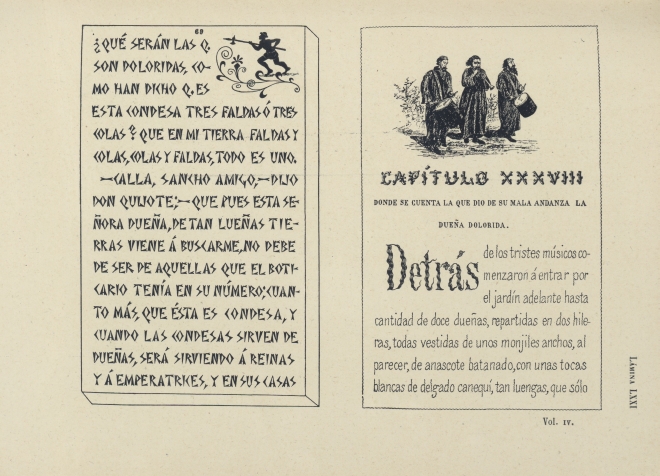 69
¿QUÉ SERÁN LAS Q.
SON DOLORIDAS, CO-
MO HAN DICHO Q. ES
ESTA CONDESA TRES FALDAS Ó TRES
COLAS? QUE EN MI TIERRA FALDAS Y
COLAS, COLAS Y FALDAS, TODO ES UNO.
—CALLA, SANCHO AMIGO,—DIJO
DON QUIJOTE;—QUE PUES ESTA SE-
ÑORA DUEÑA, DE TAN LUEÑAS TIE-
RRAS VIENE Á BUSCARME, NO DEBE
DE SER DE AQUELLAS QUE EL BOTI-
CARIO TENÍA EN SU NÚMERO; CUAN-
TO MÁS, QUE ÉSTA ES CONDESA, Y
CUANDO LAS CONDESAS SIRVEN DE
DUEÑAS, SERÁ SIRVIENDO Á REINAS
Y Á EMPERATRICES, Y EN SUS CASAS
CAPÍTULO XXXVIII
DONDE SE CUENTA LA QUE DIO DE SU MALA ANDANZA LA
DUEÑA DOLORIDA.
Detrás de los tristes músicos co-
menzaron á entrar por
el jardín adelante hasta
cantidad de doce dueñas, repartidas en dos hile-
ras, todas vestidas de unos monjiles anchos, al
parecer, de anascote batanado, con unas tocas
blancas de delgado canequí, tan luengas, que sólo
Vol. IV.
LÁMINA LXXI